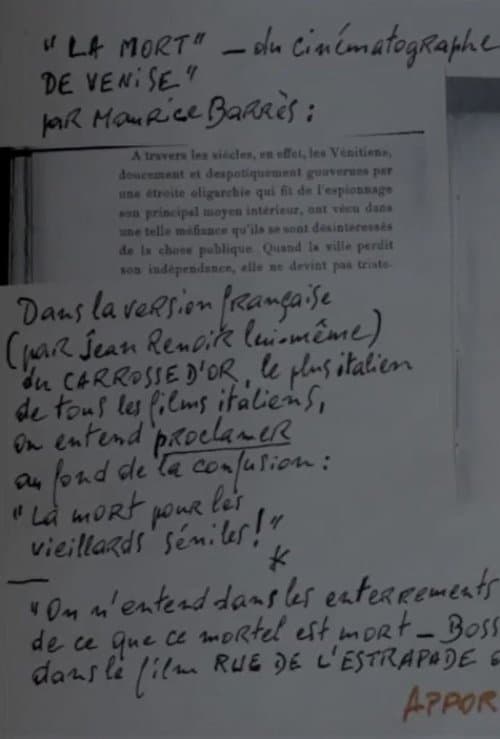 "LA MORT" – du cinématographe
DE VENISE"
par Maurice Barrès :
A travers les siècles, en effet, les Vénitiens,
doucement et despotiquement gouvernés par
une étroite oligarchie qui fit de l'espionnage
son principal moyen intérieur, ont vécu dans
une telle méfiance qu'ils se sont désintéressés
de la chose publique. Quand la ville perdit
son indépendance, elle ne devint pas triste.
Dans la version française
(par Jean Renoir lui-même)
du CARROSSE D'OR, le plus italien
de tous les films italiens,
on entend proclamer
au fond de la confusion :
"La mort pour les
vieillards séniles!"
*
"On n'entend dans les enterrements
de ce que ce mortel est mort – BOSS
dans le film RUE DE L'ESTRAPADE
APPOR